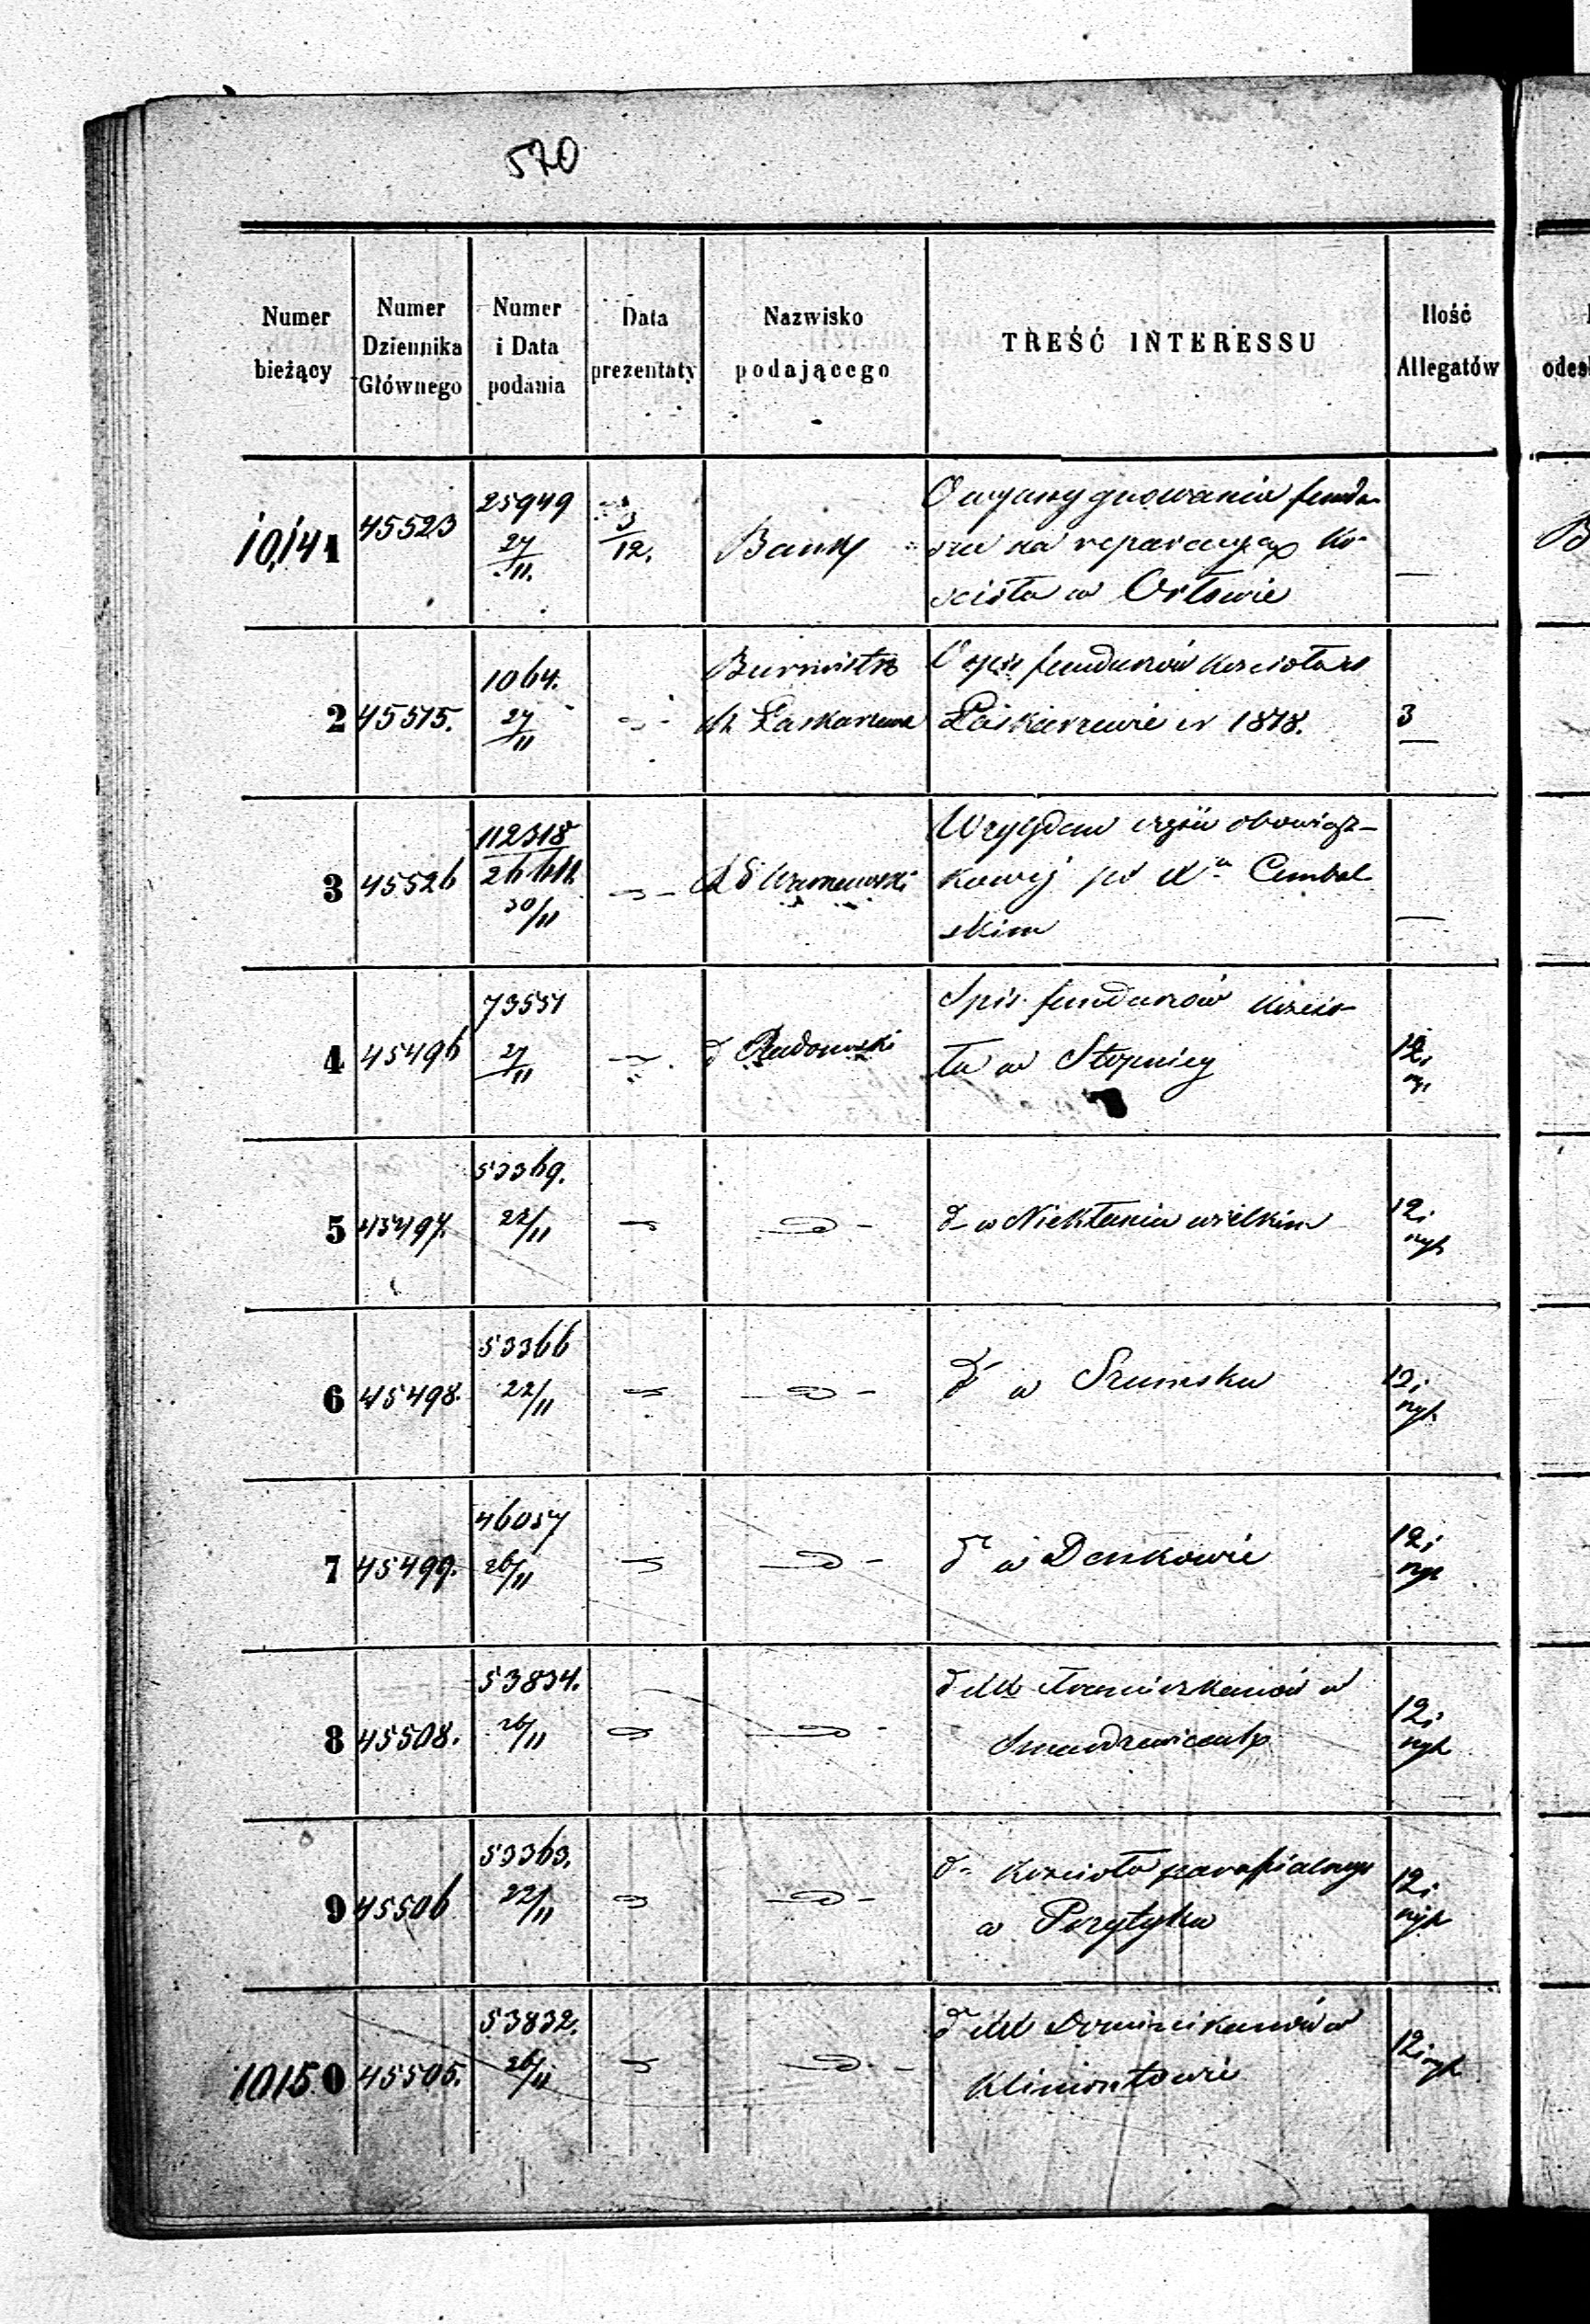 570
Numer bieżący
Numer Dziennika Głównego
Numer i Data podania
Data prezentaty
Nazwisko podającego
TREŚĆ INTERESSU
Ilość Allegatów
10,141 45523 25949 27/11. 3/12. Bank O wyassygnowanie fundu-
szu na reparacyą Ko-
ścioła w Orłowie —
2 45515. 1064. 27/11 Burmistrz
M. Łaskarzewa
O spis funduszów Kościoła w
Łaskarzewie w 1878. 3
3 45526 112318 30/11 obowiąz-
kowej po Cimbal-
skim —
4 45496 73551 27/11 Spis funduszów Kościo-
ła w Stopnicy 12i
5 45497. 53369. 22/11 w Niekłaniu wielkim 12i
ryh
6 45498. 53366 22/11 w Szumsku 12i
ryh
7 45499. 46057 26/11 w Denkowie 12i
ryh
8 45508. 53834. 26/11 Franciszkanów w
12i
ryh
9 45506 53363. 22/11 Kościoła parafialnego
w Przytyku 12i
ryh
10150 45505. 53832. 26/11 Dominikanów w
Klimontowie 12i ryh